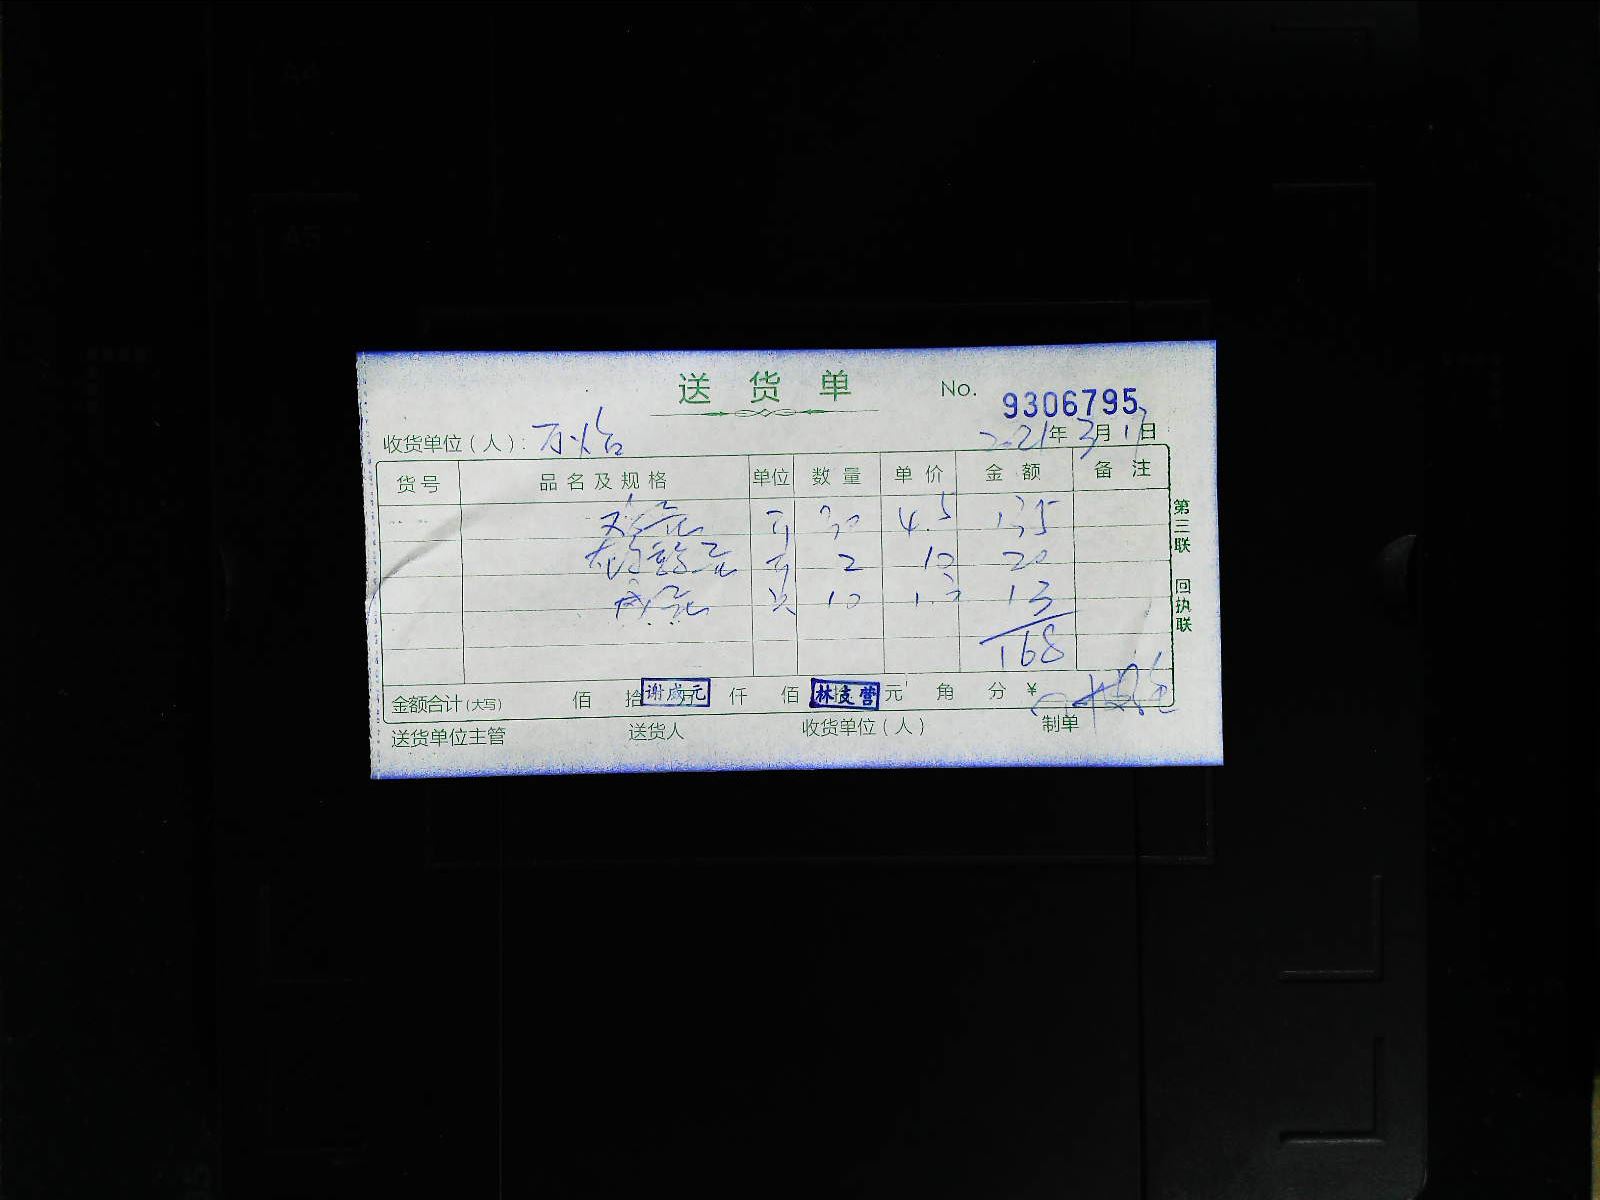 送货单 No. 9306795
收货单位（人）： 万怡 2021年3月17日
货号 品名及规格 单位 数量 单价 金额 备注
鸡蛋 斤 30 4.5 135
斤 2 10 20
咸蛋 只 10 1.3 13
168
第三联 回执联
金额合计(大写) 佰 拾 万 仟 佰 拾 元 角 分 ¥
谢咸元 林支营
送货单位主管 送货人 收货单位（人） 制单
A4
A5